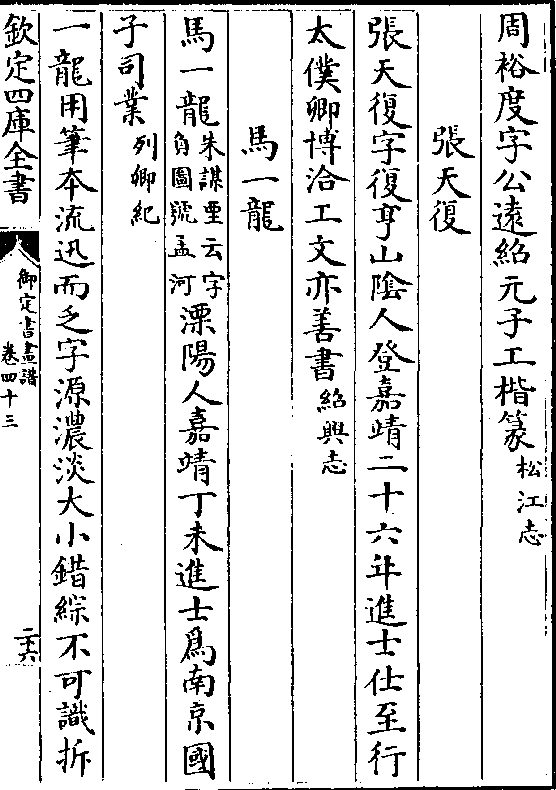 周裕度字公遠紹元子工楷篆松江志
張天復
張天復字復亨山隂人登嘉靖二十六年進士仕至行
太僕卿博洽工文亦善書紹興志
馬一龍
馬一龍朱謀垔云字負圖號孟河溧陽人嘉靖丁未進士爲南京國
子司業列卿紀
一龍用筆本流迅而乏字源濃淡大小錯綜不可識拆
欽定四庫全書
御定書畫譜
卷四十三
二十六